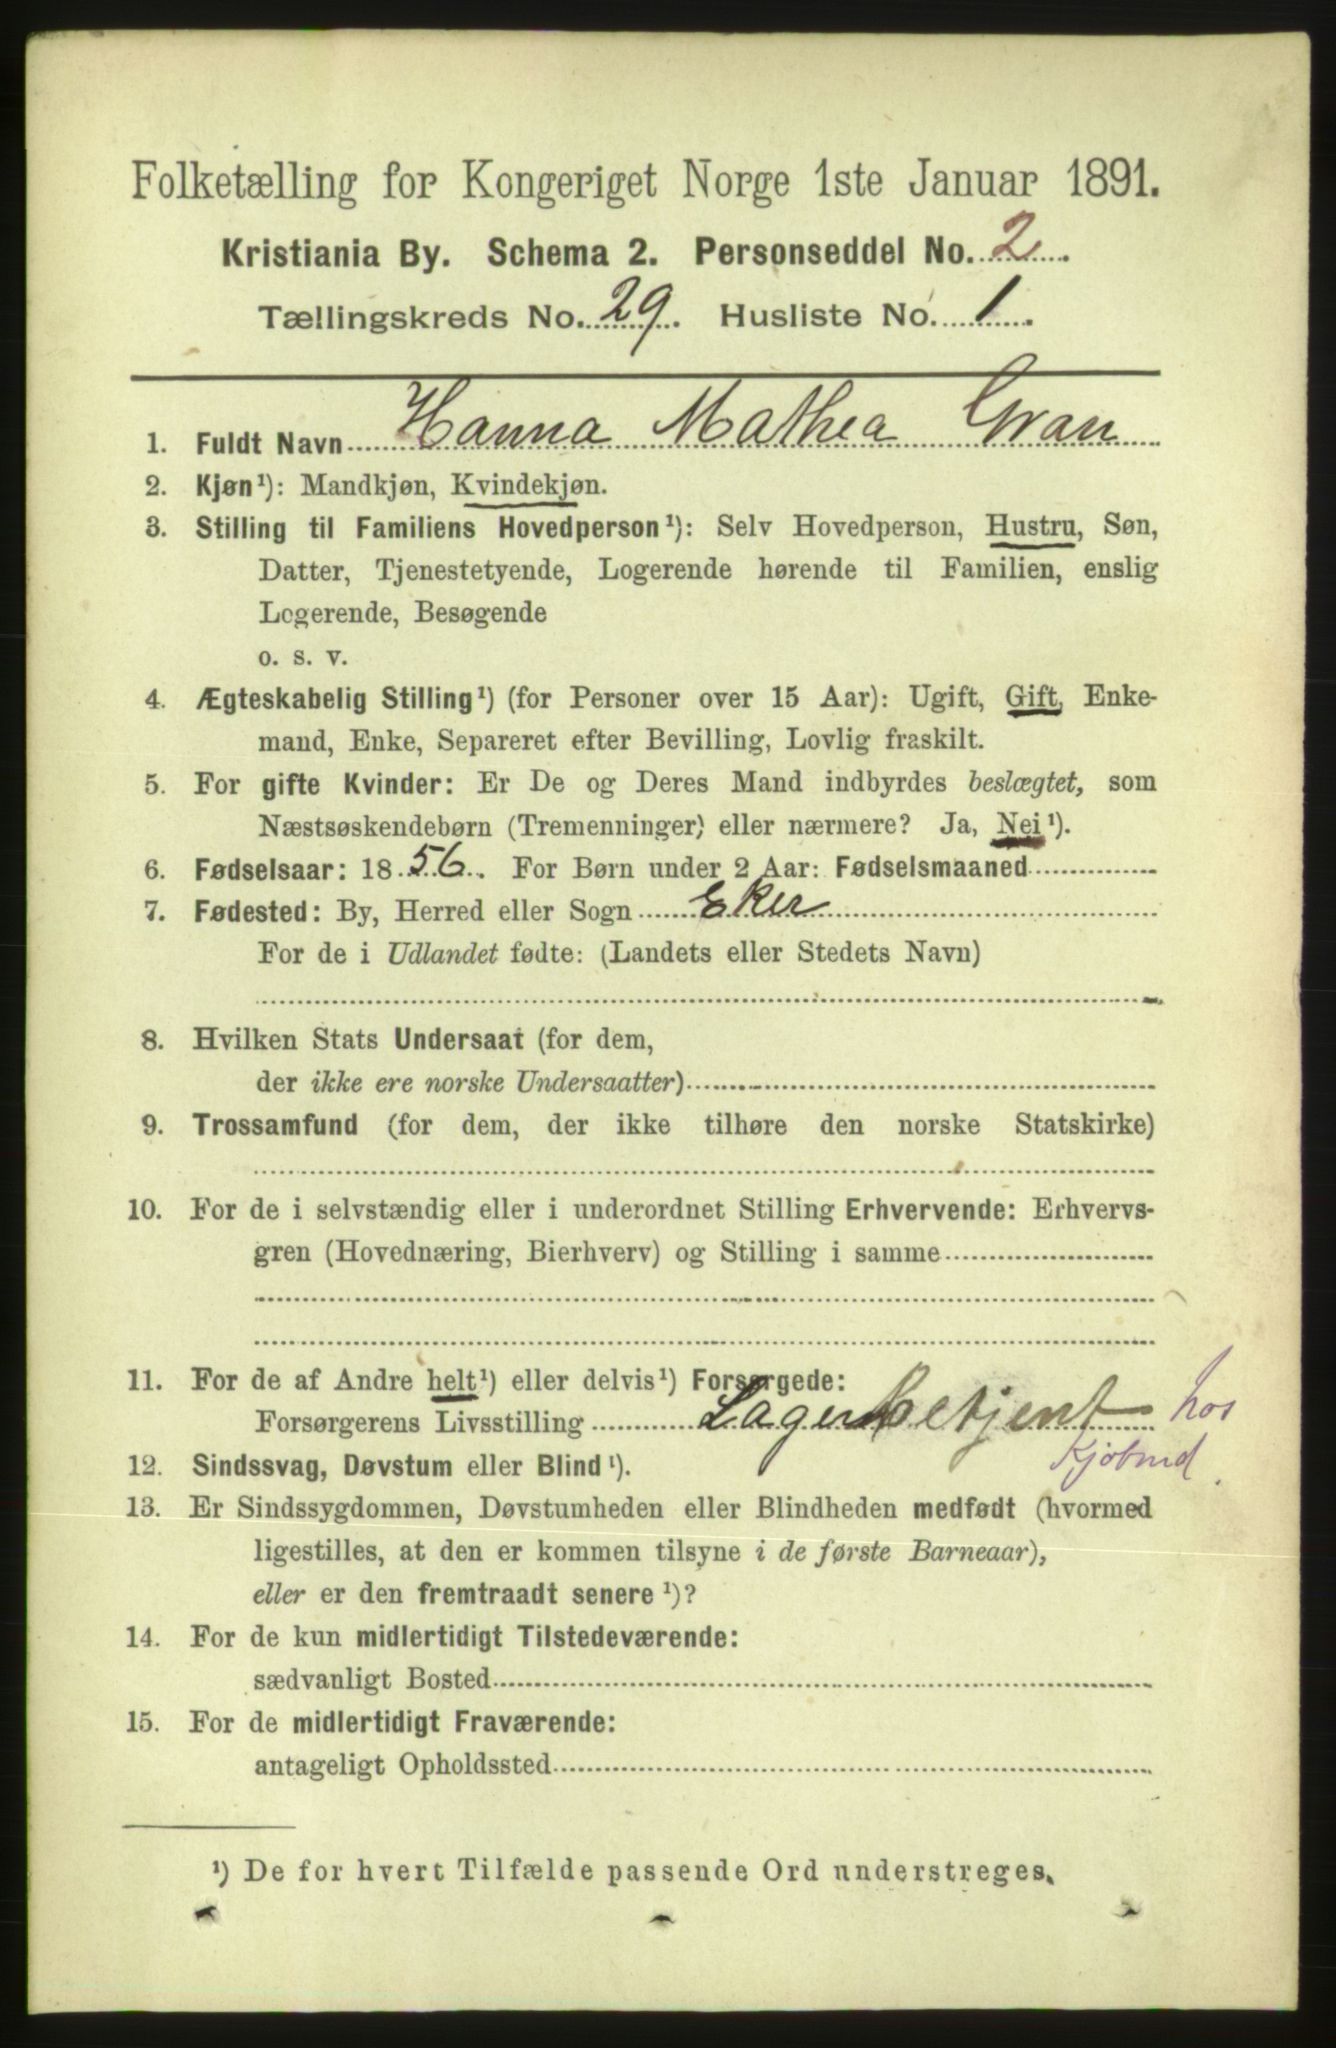 Folketælling for Kongeriget Norge 1ste Januar 1891.
Kristiania By. Schema 2. Personseddel No. 2
Tællingskreds No. 29. Husliste No. 1
1. Fuldt Navn Hanna Mathea Gran
2. Kjøn¹): Mandkjøn, Kvindekjøn.
3. Stilling til Familiens Hovedperson¹): Selv Hovedperson, Hustru, Søn,
Datter, Tjenestetyende, Logerende hørende til Familien, enslig
Logerende, Besøgende
o. s. v.
4. Ægteskabelig Stilling¹) (for Personer over 15 Aar): Ugift, Gift, Enke-
mand, Enke, Separeret efter Bevilling, Lovlig fraskilt.
5. For gifte Kvinder: Er De og Deres Mand indbyrdes beslægtet, som
Næstsøskendebørn (Tremenninger) eller nærmere? Ja, Nei¹).
6. Fødselsaar: 1856. For Børn under 2 Aar: Fødselsmaaned
7. Fødested: By, Herred eller Sogn Eker
For de i Udlandet fødte: (Landets eller Stedets Navn)
8. Hvilken Stats Undersaat (for dem,
der ikke ere norske Undersaatter)
9. Trossamfund (for dem, der ikke tilhøre den norske Statskirke)
10. For de i selvstændig eller i underordnet Stilling Erhvervende: Erhvervs-
gren (Hovednæring, Bierhverv) og Stilling i samme
11. For de af Andre helt¹) eller delvis¹) Forsørgede:
Forsørgerens Livsstilling Lagerbetjent hos
Kjøbmd.
12. Sindssvag, Døvstum eller Blind¹).
13. Er Sindssygdommen, Døvstumheden eller Blindheden medfødt (hvormed
ligestilles, at den er kommen tilsyne i de første Barneaar),
eller er den fremtraadt senere¹)?
14. For de kun midlertidigt Tilstedeværende:
sædvanligt Bosted
15. For de midlertidigt Fraværende:
antageligt Opholdssted
¹) De for hvert Tilfælde passende Ord understreges.